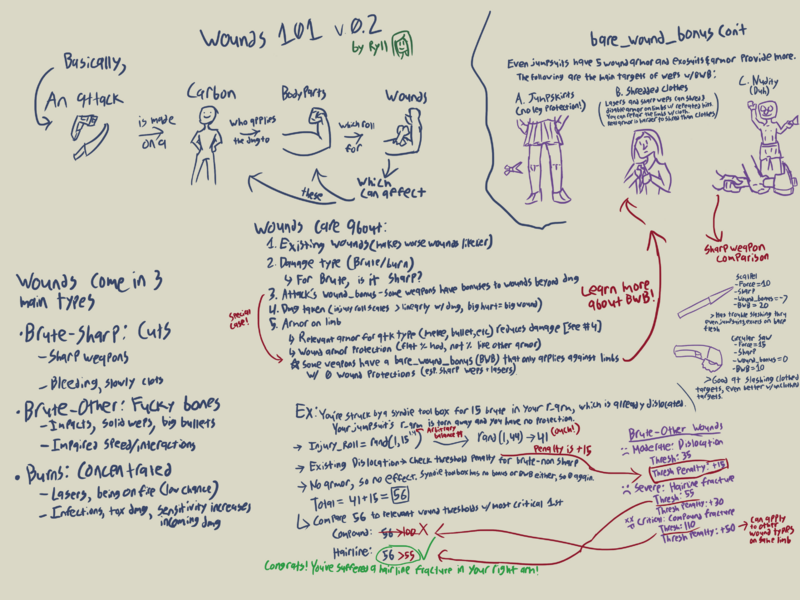 Wounds 101 v 0.2
by Ryll
Basically,
An attack
is made
on a
Carbon
who applies
the dmg to
BodyParts
which roll
for
Wounds
which
can affect
these
Wounds care about:
1. Existing wounds (makes worse wounds likelier)
2. Damage type (Brute/burn)
↳ For Brute, is it sharp?
3. Attack's wound_bonus - some weapons have bonuses to wounds beyond dmg
5. Armor on limb
↳ Relevant armor for atk type (melee, bullet, etc) reduces damage [see #4]
↳ Wound armor Protection (flat % mod, not % like other armor)
☆ Some weapons have a bare_wound_bonus (BWB) that only applies against limbs
w/ 0 wound Protections (esp. sharp weps + lasers)
Special
case!
Learn more
about BWB!
Wounds come in 3
main types
• Brute-Sharp: Cuts
- Sharp weapons
- Bleeding, slowly clots
• Brute-Other: Fucky bones
- Impacts, solid weps, big
bullets
- Impaired speed/interactions
• Burns: Concentrated
- Lasers, being on fire (low chance)
- Infections, tox dmg, sensitivity increases
incoming dmg
bare_wound_bonus Con't
Even jumpsuits have 5 wound armor and exosuits/armor provide more.
The following are the main targets of weps w/BWB:
A. Jumpskirts
(no leg Protection!)
B. Shredded clothes
C. Nudity
(Duh)
Sharp weapon
comparison
Scalpel
- Force = 10
- Sharp
- BWB = 20
> Has trouble slashing thru
even jumpsuits, excels on bare
flesh
Circular Saw
- Force = 15
- Sharp
- Wound_bonus = 0
- BWB = 10
> Good at slashing clothed
targets, even better w/ unclothed
Ex: You're struck by a Syndie toolbox for 15 brute in your r-arm, which is already dislocated.
Your jumpsuit's r-arm is torn away and you have no protection.
Arbitrary
balance #
(ouch!)
→ Injury_Roll = rand(1, 15
rand(1, 44) → 41
Penalty is +15
→ Existing Dislocation → Check threshold penalty for brute-non sharp
→ No armor, so no effect. Syndie toolbox has no bonus or BWB either, so 0 again.
Total = 41 + 15 = 56
↳ Compare 56 to relevant wound thresholds w/ most critical 1st
Compound: 56 > 100 X
Hairline: 56 > 55
Congrats! You've suffered a hairline fracture in your right arm!
Brute-Other Wounds
Moderate: Dislocation
Thresh: 35
Thresh Penalty: +15
Severe: Hairline fracture
Thresh: 55
Thresh Penalty: +30
Critical: Compound fracture
Thresh: 110
Thresh Penalty: +50
→ Can apply
to other
wound types
on same limb